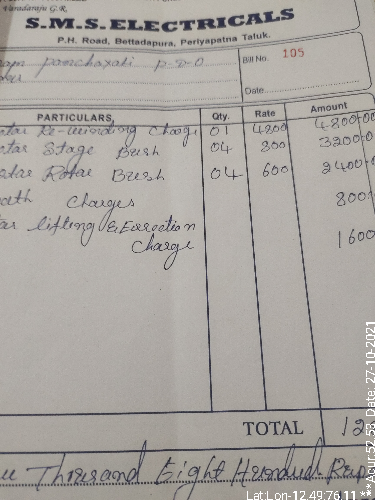 Varadaraju G.R.
S.M.S. ELECTRICALS
P.H. Road, Bettadapura, Periyapatna Taluk.
Panchayati P-D-O
Bill No. 105
Date
PARTICULARS Qty. Rate Amount
Re-winding Charge 01 4800 4800-00
Stage Bush 04 800 3200-00
Rotar Bush 04 600 2400-00
Charges 800
lifting & Errection 1600
Charge
TOTAL 12
Thousand Eight Hundred Rup
Lat Lon-12.49:76.11 *** Acur:52.58 Date: 27-10-2021